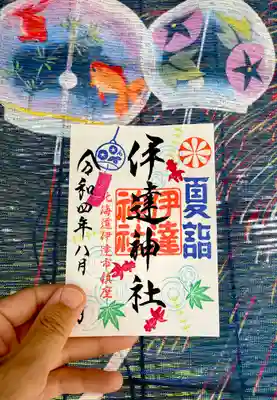 夏詣
伊達神社
伊達
神社
北海道伊達市鎮座
令和四年八月